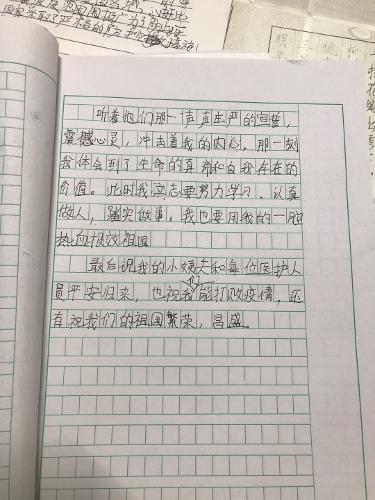 听着他们那一声声庄严的宣誓，
震撼心灵，冲击着我的内心，那一刻
我体会到了生命的真谛和自我存在的
价值。此时我立志要努力学习、认真
做人，踏实做事。我也要用我的一腔
热血报效祖国
最后说我的小姨夫和每位医护人
员平安归来，也祝我们能打败疫情，还
有祝我们的祖国繁荣，昌盛。